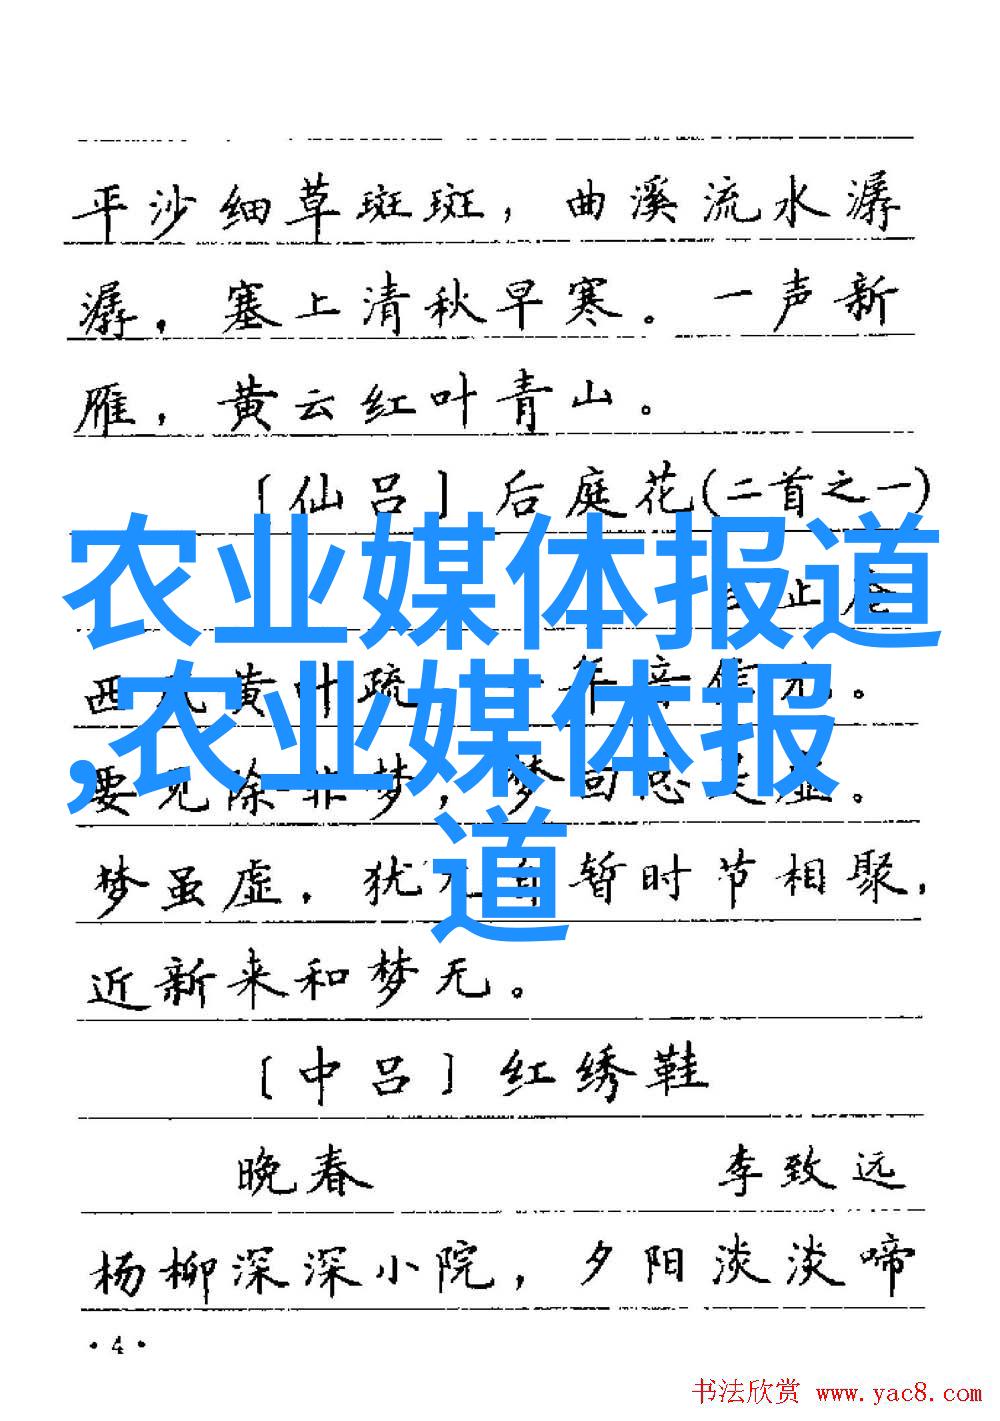 平沙细草斑斑，曲溪流水潺
潺，塞上清秋早寒。一声新
雁，黄云红叶青山。
〔仙吕〕后庭花(二首之一)
农业媒体报道
止
西黄叶疏年音信无。
,农业媒体报
要见除非梦，梦回总是虚。
梦虽虚，犹自暂时节相聚，
道
近新来和梦无。
〔中吕〕红绣鞋
晚春 李致远
杨柳深深小院，夕阳淡淡啼
·4·
书法欣赏 www.yac8.com